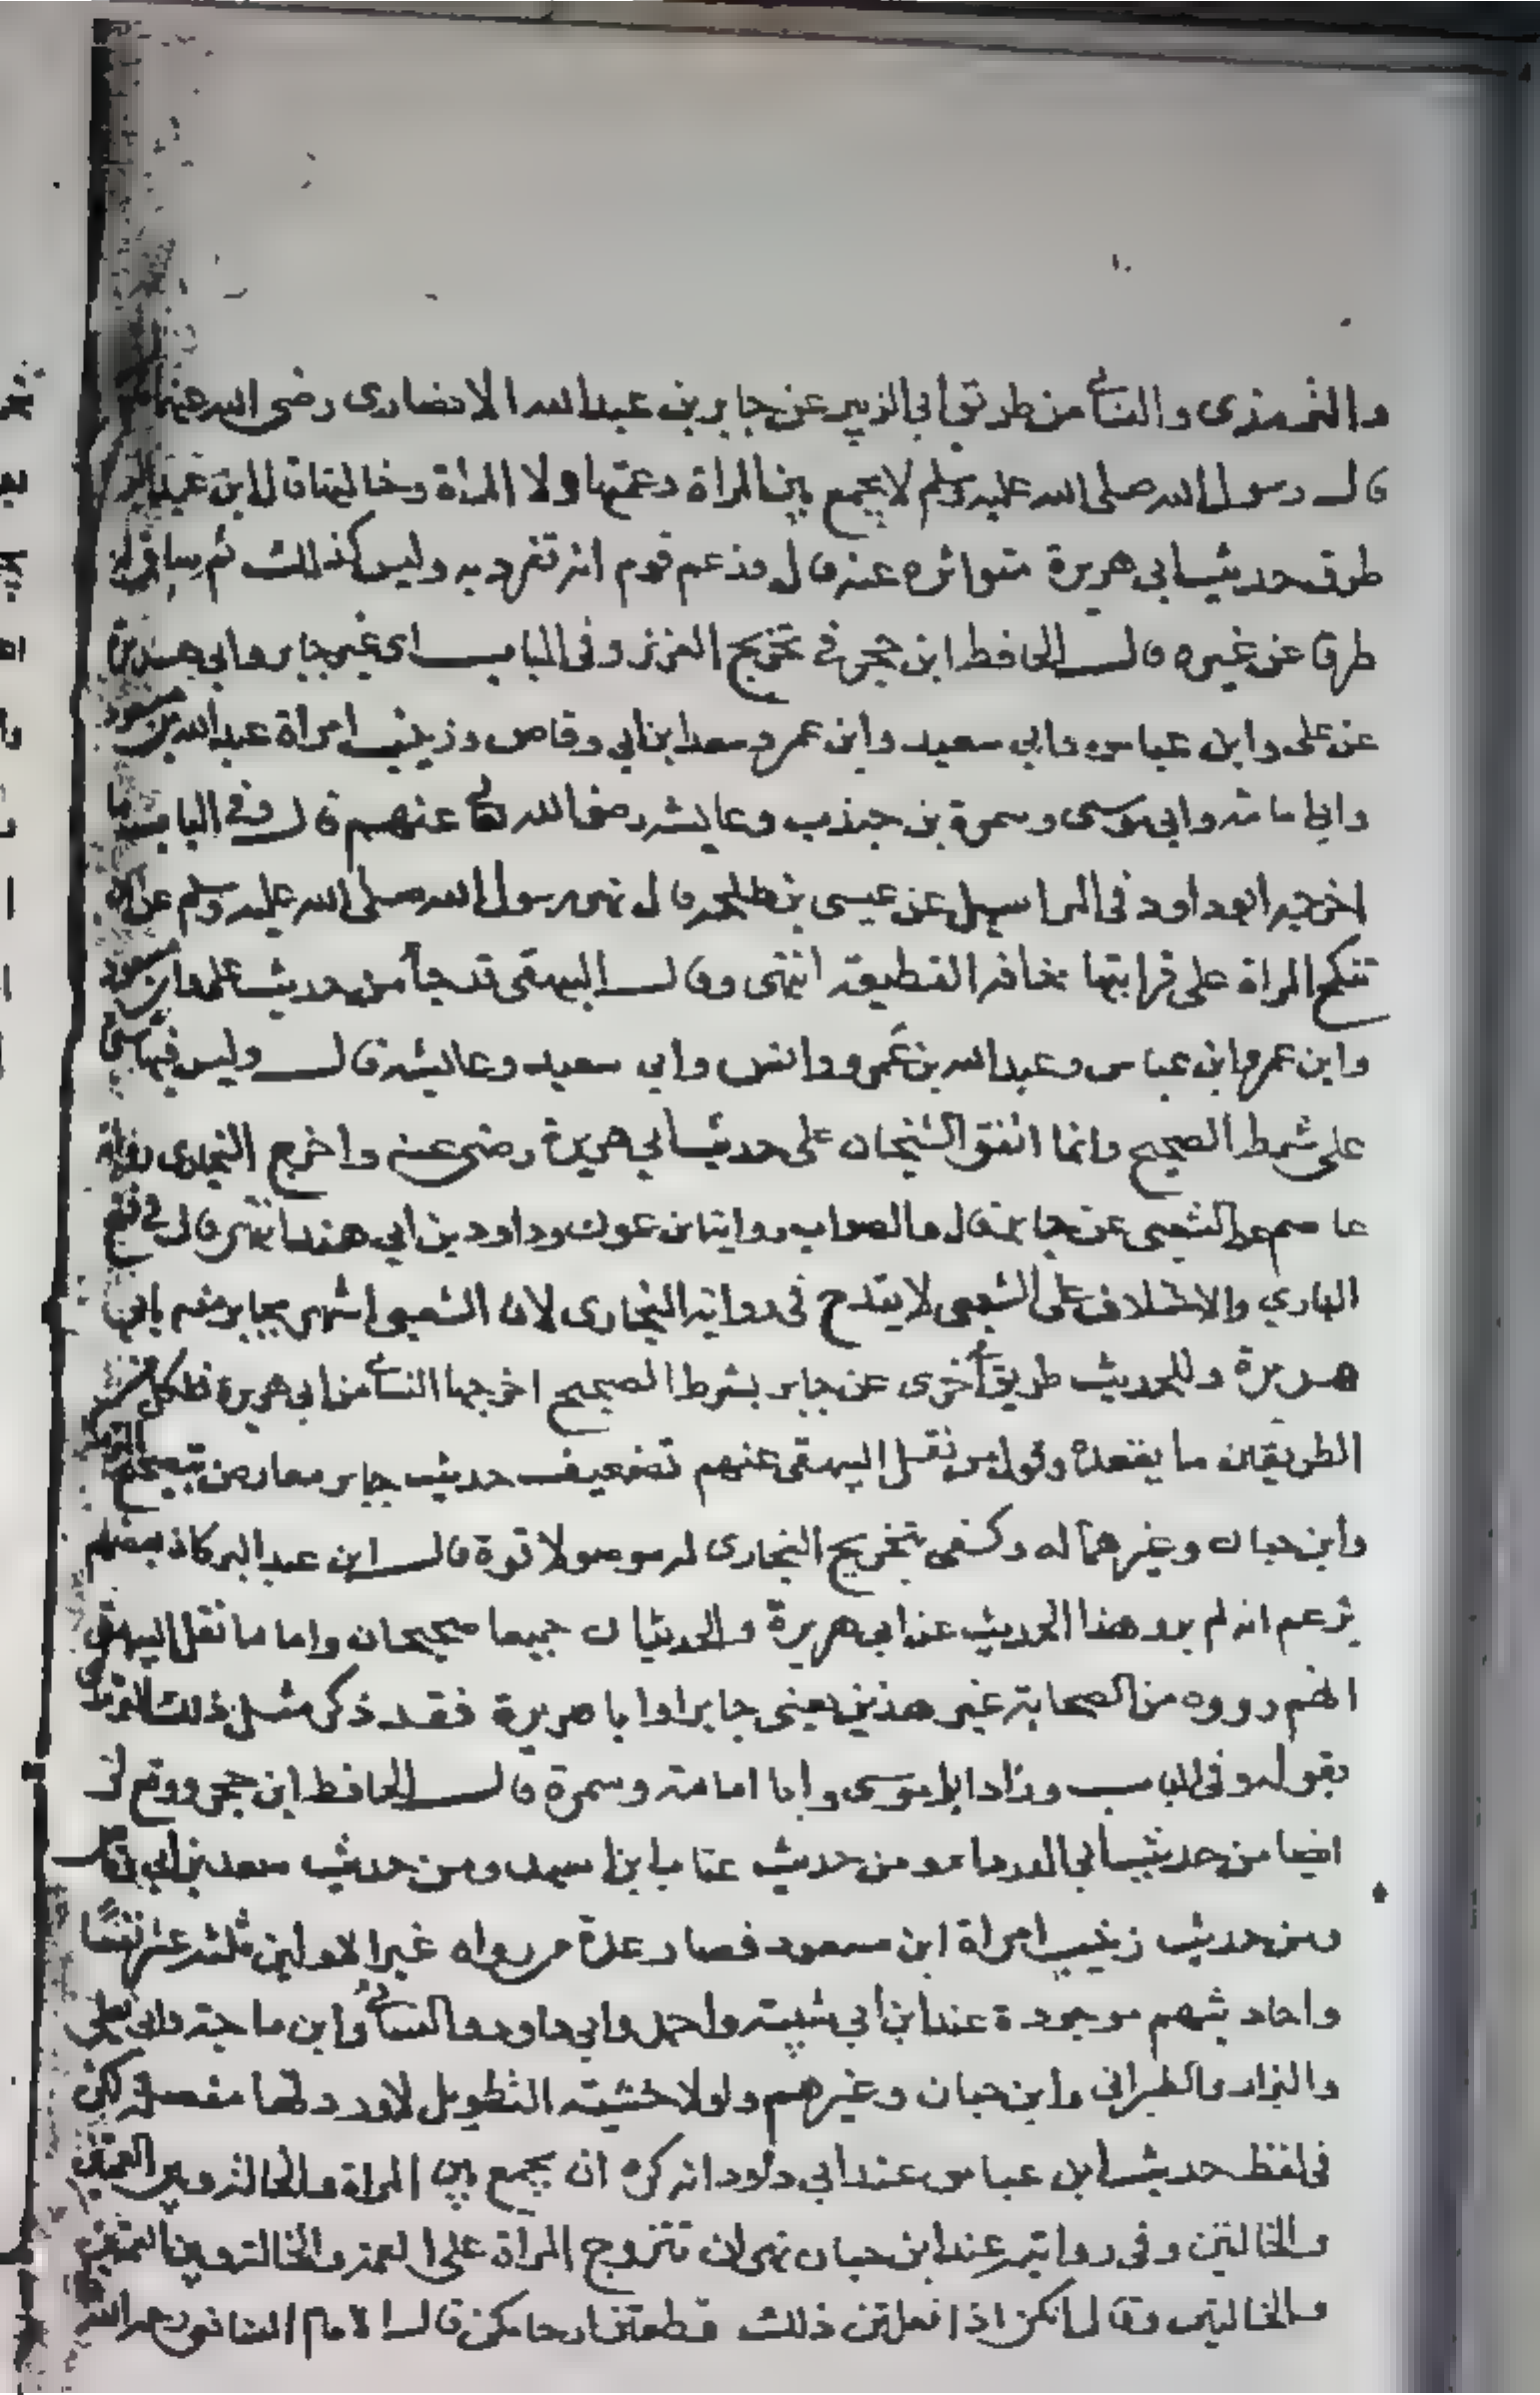 والترمذى والنسائى من طريق ابى الزبير عن جابر بن عبد الله الانصارى رضى الله عنهما
قال رسول الله صلى الله عليه وسلم لا يجمع بين المراة وعمتها ولا المراة وخالتها قال ابن عبد البر
طرق حديث ابى هريرة متواتره عنه قال وزعم قوم انه تفرد به وليس كذلك ثم ساق له
طرقا عن غيره قال الحافظ ابن حجر فى تخريج العزيز وفى الباب اى غير جابر وابى هريرة
عن على وابن عباس وابى سعيد وابن عمر وسعد ابن ابى وقاص وزينب امراة عبد الله بن مسعود
وابى امامة وابى موسى وسمرة بن جندب وعايشه رضى الله تعالى عنهم قال وفى الباب ما
اخرجه ابو داود فى المراسيل عن عيسى بن طلحه قال نهى رسول الله صلى الله عليه وسلم عن ان
تنكح المراة على قرابتها مخافة القطيعة انتهى وقال البيهقى قد جاء من حديث على وابن مسعود
وابن عمر وابن عباس وعبد الله بن عمرو وانس وابى سعيد وعايشه قال وليس فيها شئ
على شرط الصحيح وانما اتفق الشيخان على حديث ابى هريرة رضى عنه واخرج البخارى رواية
عاصم عن الشعبى عن جابر قال والصواب رواية ابن عون وداود بن ابى هند انتهى قال فى فتح
البارى والاختلاف على الشعبى لا يقدح فى رواية البخارى لان الشعبى اشهر بجابر منه بابى
هريرة وللحديث طريق اخرى عن جابر بشرط الصحيح اخرجها النسائى من ابى هريرة فلكل من
الطريقين ما يعضده وقول من نقل البيهقى عنهم تضعيف حديث جابر معارض بتصحيح الترمذى
وابن حبان وغيرهما له وكفى بتخريج البخارى له موصولا قوة قال ابن عبد البر كان بعضهم
يزعم انه لم يرو هذا الحديث عن ابى هريرة والحديثان جميعا صحيحان واما ما نقل البيهقى
انهم رووه من الصحابة غير هذين يعنى جابرا وابا هريرة فقد ذكر مثل ذلك الترمذى
بقوله وفى الباب وزاد ابا موسى وابا امامة وسمرة قال الحافظ ابن حجر ووقع لى
ايضا من حديث ابى الدرداء ومن حديث عتاب ابن اسيد ومن حديث سعد بن ابى وقاص
ومن حديث زينب امراة ابن مسعود فصار عدة من رواه غير الاولين ثلثة عشر نفسا
واحاديثهم موجودة عند ابن ابى شيبة واحمد وابى داود والنسائى وابن ماجة وابى يعلى
والبزار والطبرانى وابن حبان وغيرهم ولولا خشية التطويل لاوردتها مفصلة لكن
فى لفظ حديث ابن عباس عند ابى داود انه كره ان يجمع بين المراة والخالة وبين العمتين
والخالتين وفى رواية عند ابن حبان نهى ان تتزوج المراة على العمة والخالة وبين العمتين
والخالتين وقال انكن اذا فعلتن ذلك قطعتن ارحامكن قال الامام الشافعى رحمه الله